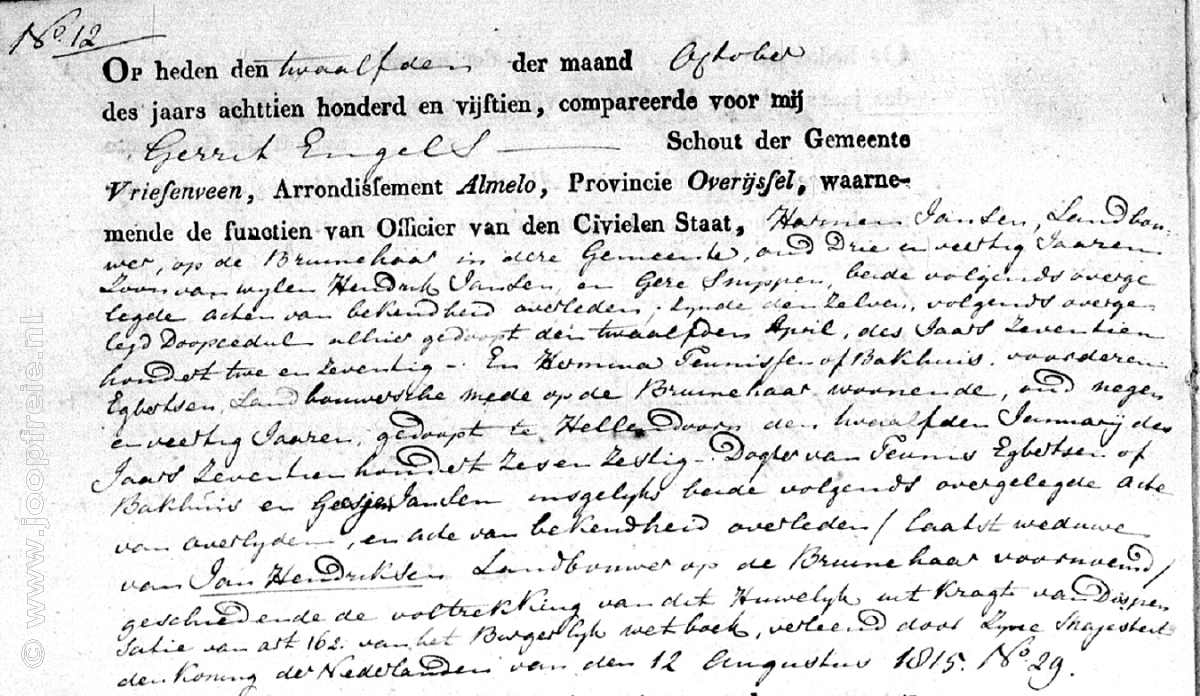 No. 12
Op heden den twaalfden der maand October
des jaars achttien honderd en vijftien, compareerde voor mij
Gerrit Engels Schout der Gemeente
Vriesenveen, Arrondissement Almelo, Provincie Overijssel, waarne-
mende de functien van Officier van den Civielen Staat, Harmen Jansen, Landbou-
wer, op de Bruinehaar in deze Gemeente, oud Drie en veertig Jaaren
Zoon van wylen Hendrik Jansen, en Gere Snippen, beide volgends overge
legde acten van bekendheid overleden, zynde denzelven, volgends overge-
legd Doopcedul alhier gedoopt den twaalfden April, des Jaars Zeventien
hondert twe en Zeventig -. En Hermina Teunissen of Bakhuis. voorderen
Egbertsen, Landbouwersche mede op de Bruinehaar woonende, oud negen
en veertig Jaaren, gedoopt te Hellendoorn den twaalfden Januarij des
Jaars Zeventien hondert Zes en Zestig -. Dogter van Teunis Egbertsen of
Bakhuis en Geesjen Jansen insgelyks beide volgends overgelegde acte
van overlyden, en acte van bekendheid overleden / laatst weduwe
van Jan Hendriksen Landbouwer op de Bruinehaar voornoemd /
geschiedende de voltrekking van dit Huwelyk uit kragte van Dispen
satie van art 162. van het Burgerlyk wetboek, verleend door Zyne Majesteit
den Koning der Nederlanden van den 12 Augustus 1815. No. 29.
© www.joopfreie.nl